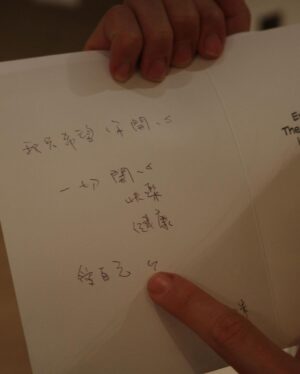 我只希望你開心
一切開心
快樂
健康
做自己